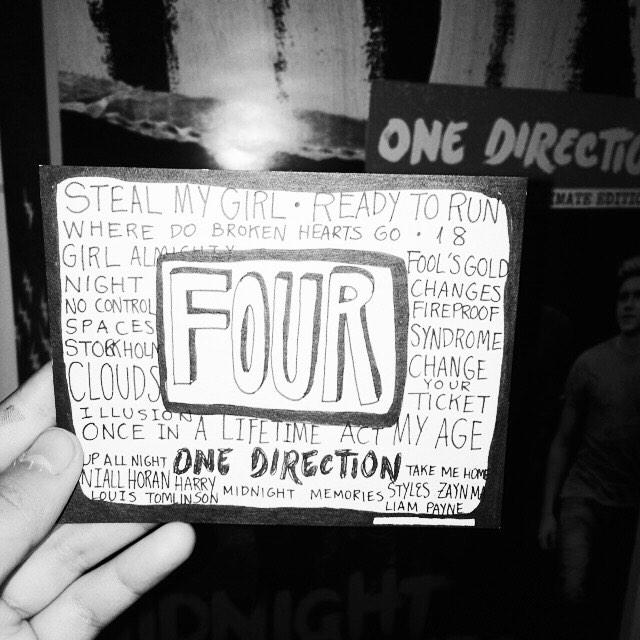 ONE DIRECTIO
MATE EDITIO
STEAL MY GIRL · READY TO RUN
WHERE DO BROKEN HEARTS GO · 18
GIRL ALMIGHTY
FOOL'S GOLD
NIGHT
CHANGES
NO CONTROL
FIREPROOF
SPACES
SYNDROME
STOCKHOLM
CHANGE
YOUR
TICKET
CLOUDS
FOUR
ILLUSION
ONCE IN A LIFETIME ACT MY AGE
UP ALL NIGHT ONE DIRECTION TAKE ME HOME
NIALL HORAN HARRY
MIDNIGHT MEMORIES STYLES ZAYN M
LOUIS TOMLINSON
LIAM PAYNE
MIDNIGHT